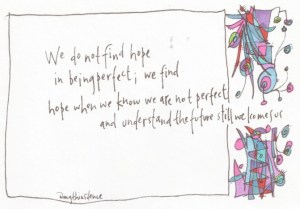 We do not find hope
in being perfect; we find
hope when we know we are not perfect
and understand the future still welcomes us